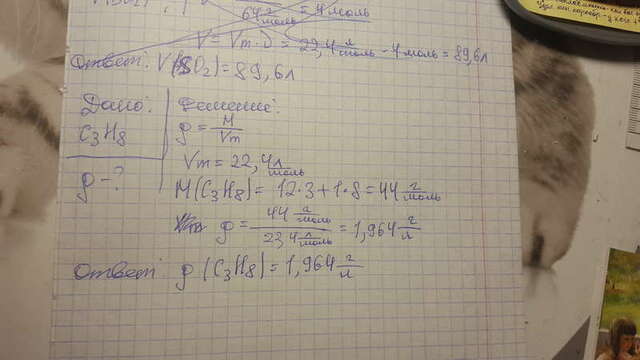 64 г/моль = 4 моль
V = Vm · υ = 22,4 л/моль - 4 моль = 89,6 л
Ответ: V(SO₂) = 89,6 л
Дано:
C₃H₈
ρ - ?
Решение:
ρ = M/Vm
Vm = 22,4 л/моль
M(C₃H₈) = 12·3 + 1·8 = 44 г/моль
ρ = 44 г/моль / 22,4 л/моль = 1,964 г/л
Ответ: ρ (C₃H₈) = 1,964 г/л